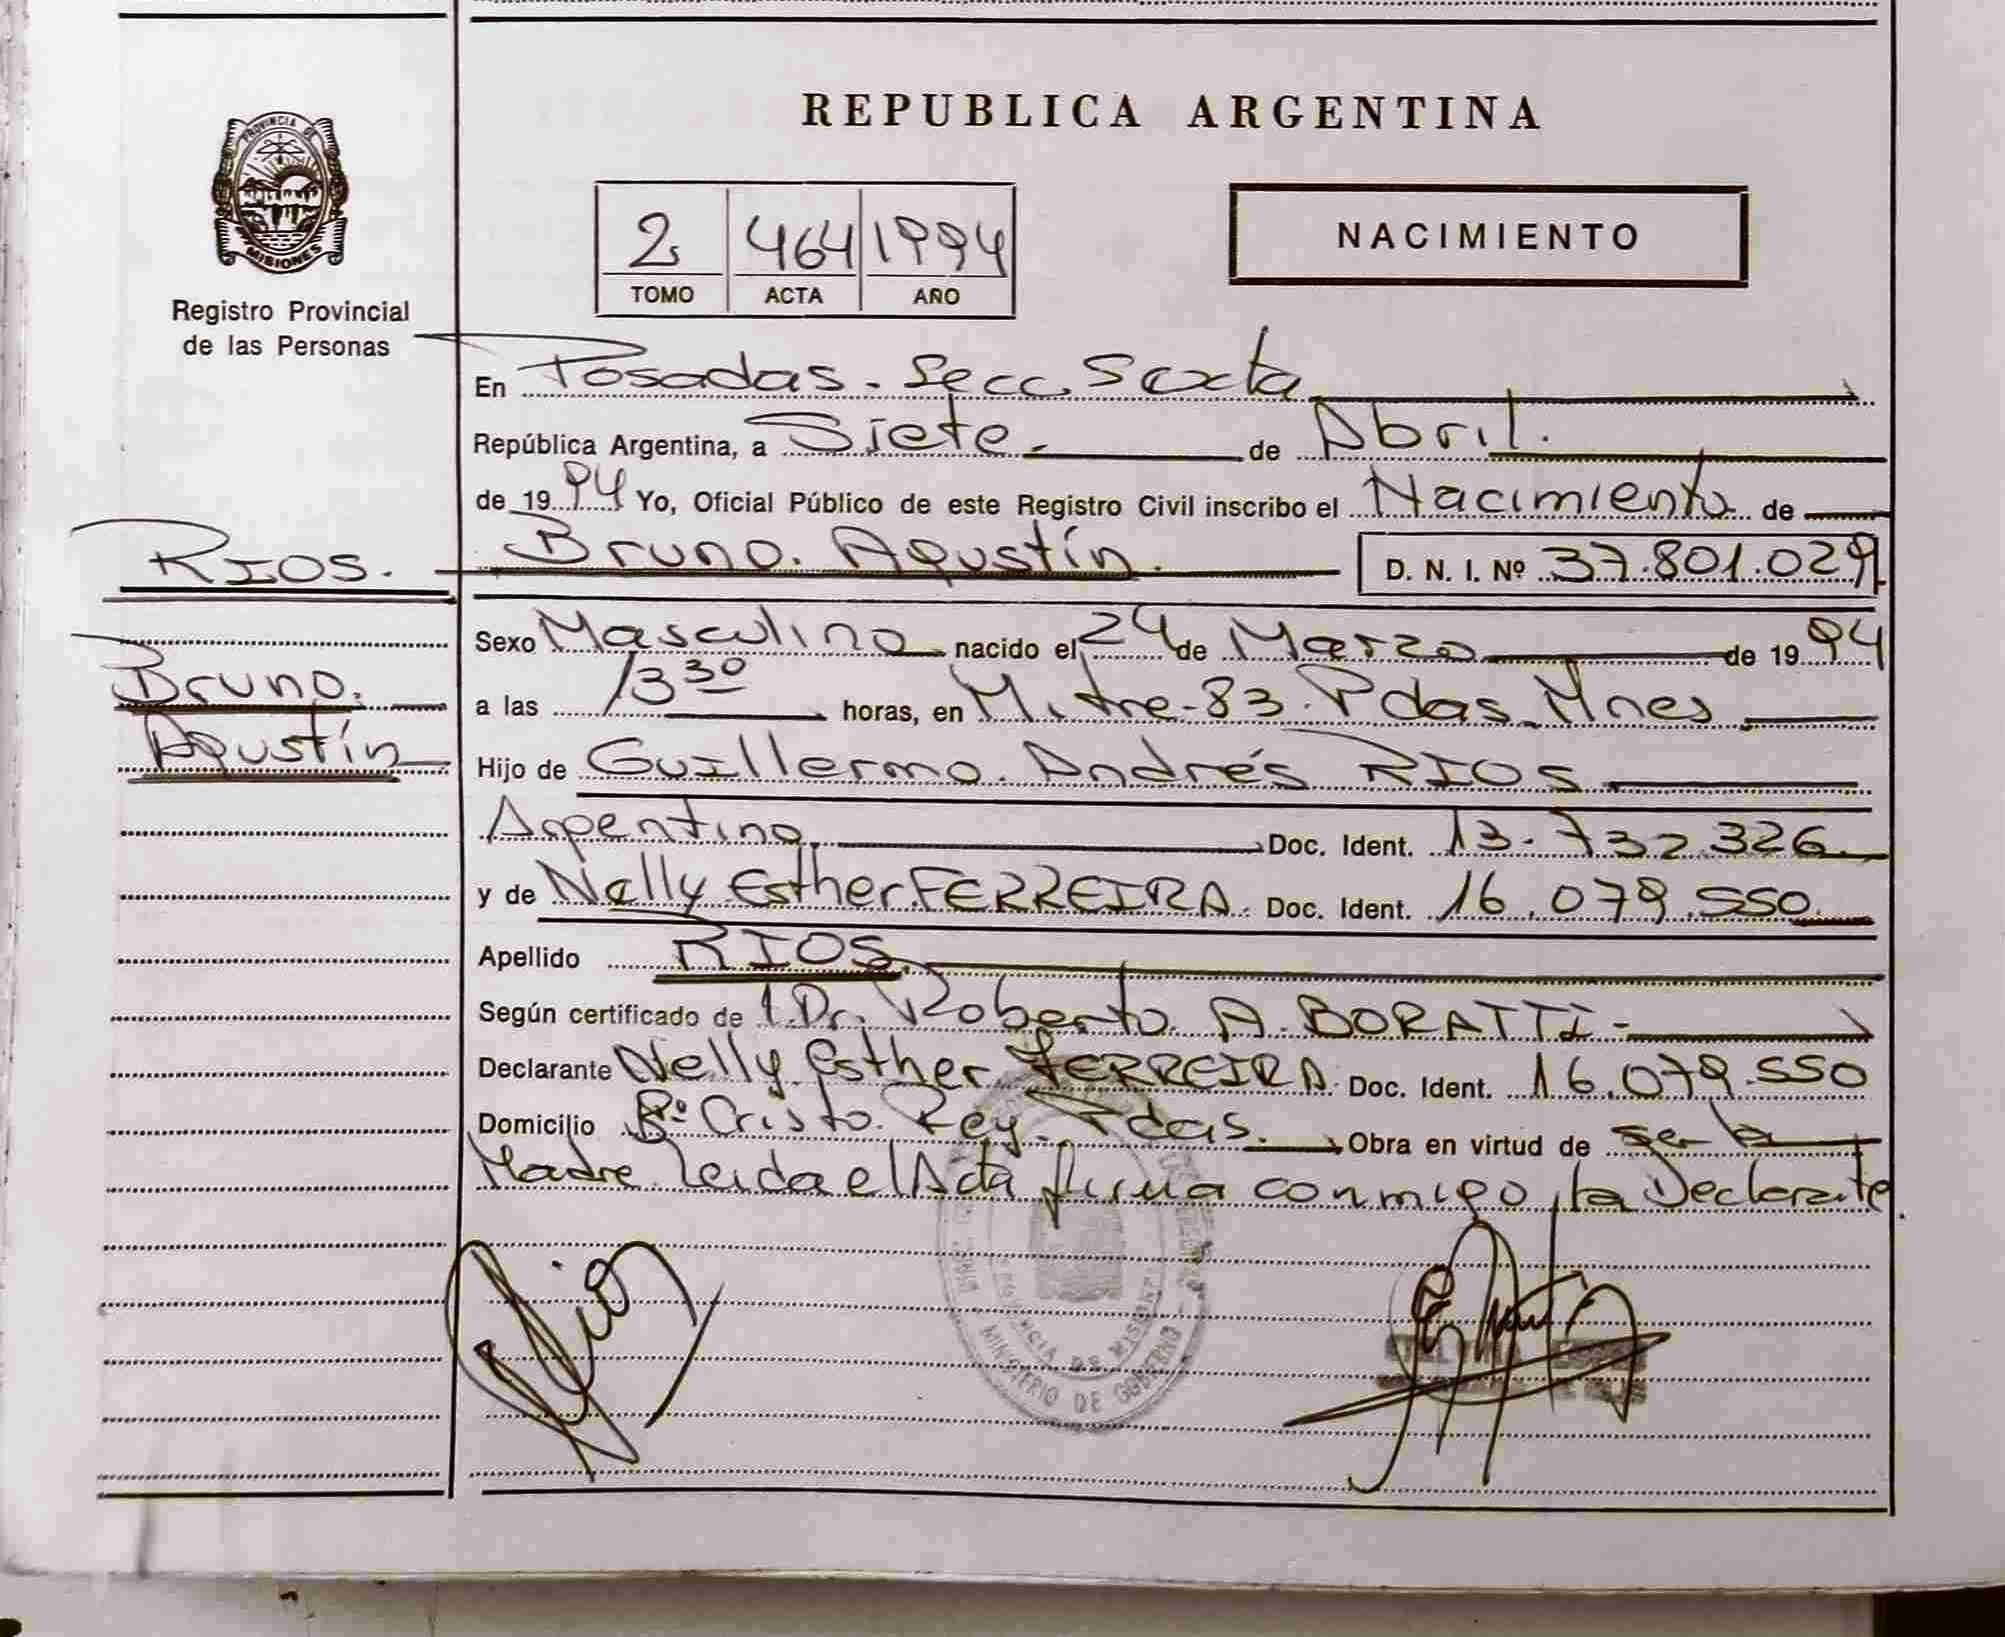 REPUBLICA ARGENTINA
PROVINCIA DE
MISIONES
Registro Provincial
de las Personas
2 464 1994
TOMO ACTA AÑO
NACIMIENTO
En Posadas - Secc. Sexta
República Argentina, a Siete de Abril.
de 1994 Yo, Oficial Público de este Registro Civil inscribo el Nacimiento de
RIOS. Bruno. Agustín. D. N. I. Nº 37.801.029
Sexo Masculino nacido el 24 de Marzo de 1994
Bruno. a las 13 30 horas, en Mitre - 83. Pdas. Mnes
Agustín Hijo de Guillermo. Andrés RIOS
Argentino Doc. Ident. 13.732.326
y de Nelly Esther FERREIRA. Doc. Ident. 16.079.550
Apellido RIOS.
Según certificado de 1. Dr. Roberto A. BORATTI -
Declarante Nelly Esther FERREIRA. Doc. Ident. 16.079.550
Domicilio Bº Cristo Rey - Pdas. Obra en virtud de ser la
Madre Leida el Acta firma conmigo, la Declarante
PROVINCIA DE MISIONES
MINISTERIO DE GOBIERNO